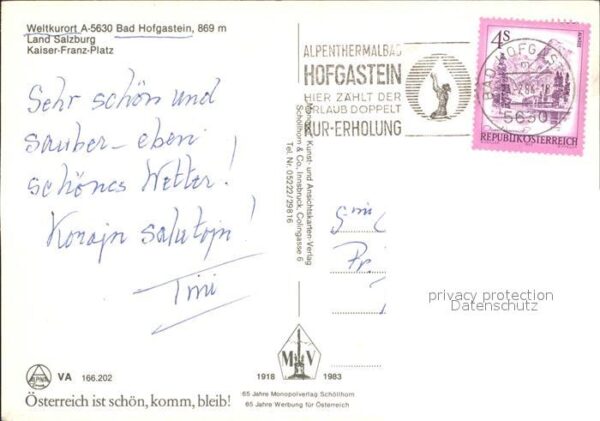 Weltkurort A-5630 Bad Hofgastein, 869 m
Land Salzburg
Kaiser-Franz-Platz
Sehr schön und
sauber - eben
schönes Wetter!
Korajn salutojn!
Tini
ALPENTHERMALBAD
HOFGASTEIN
HIER ZÄHLT DER
URLAUB DOPPELT
KUR-ERHOLUNG
BAD HOFGAST
5630
4 S
REPUBLIK ÖSTERREICH
Kunst- und Ansichtskarten-Verlag
Schöllhorn & Co., Innsbruck, Colingasse 6
Tel. Nr. 05222/29816
privacy protection
Datenschutz
M V
1918 1983
65 Jahre Monopolverlag Schöllhorn
65 Jahre Werbung für Österreich
VA 166.202
Österreich ist schön, komm, bleib!